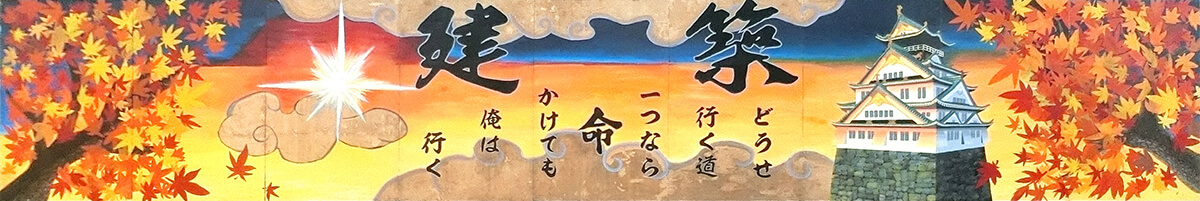 建築
どうせ
行く道
一つなら
命
かけても
俺は
行く